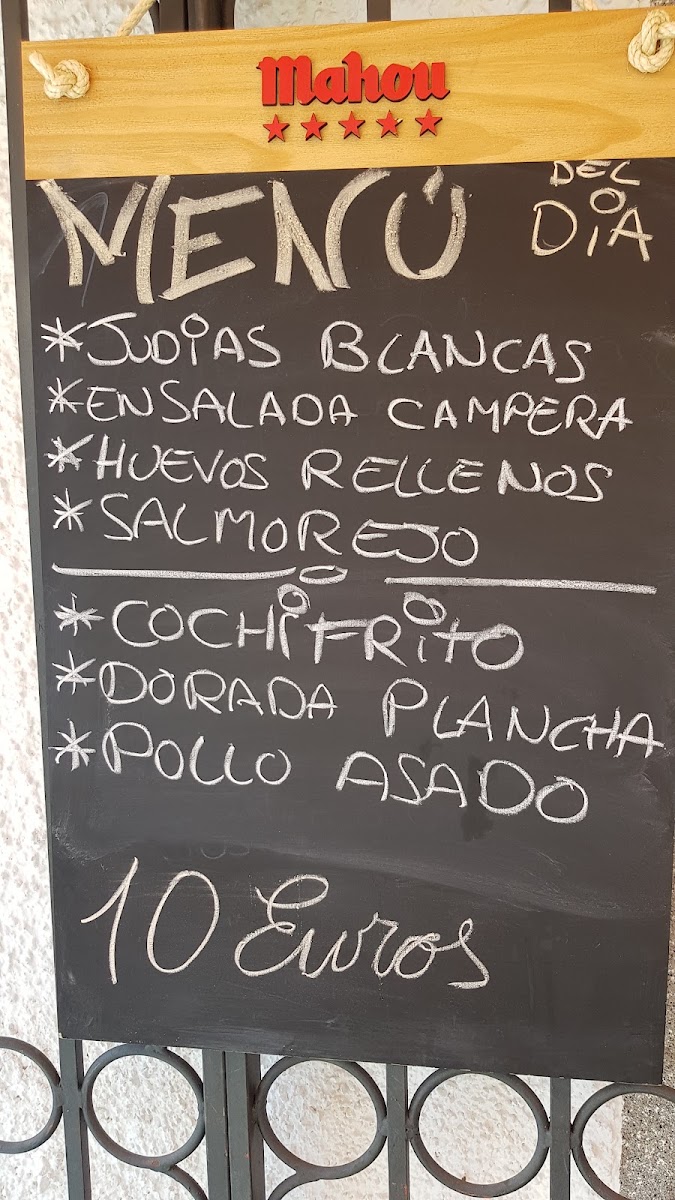 Mahou
MENÚ DEL DIA
*JUDIAS BLANCAS
*ENSALADA CAMPERA
*HUEVOS RELLENOS
*SALMOREJO
*COCHIFRITO
*DORADA PLANCHA
*POLLO ASADO
10 Euros